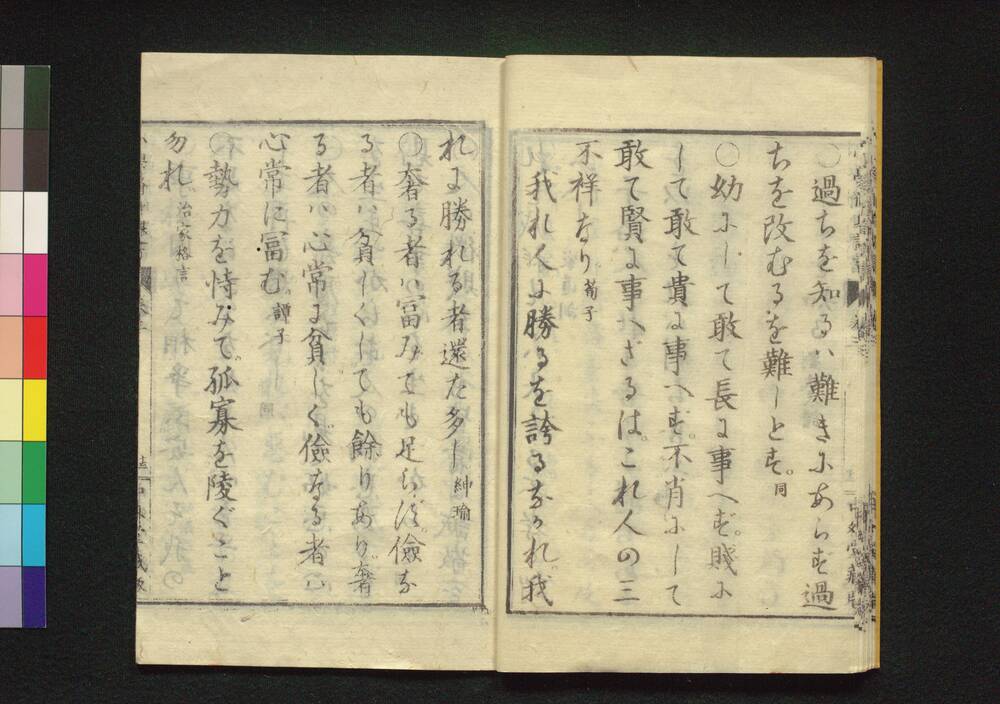 〇過ちを知るハ難きにあらず過
ちを改むるを難しとす。同
〇幼にして敢て長に事へず。賤に
して敢て貴に事へず。不肖にして
敢て賢に事へざるは。これ人の三
不祥なり荀子
〇我れ人に勝るを誇るなかれ。我
れに勝れる者還た多し紳瑜
〇奢る者ハ富みても足らず。儉な
る者ハ貧しくしても餘りあり。奢
る者ハ心常に貧しく。儉なる者ハ
心常に冨む譚子
〇勢力を恃みて。孤寡を陵ぐこと
勿れ治家格言